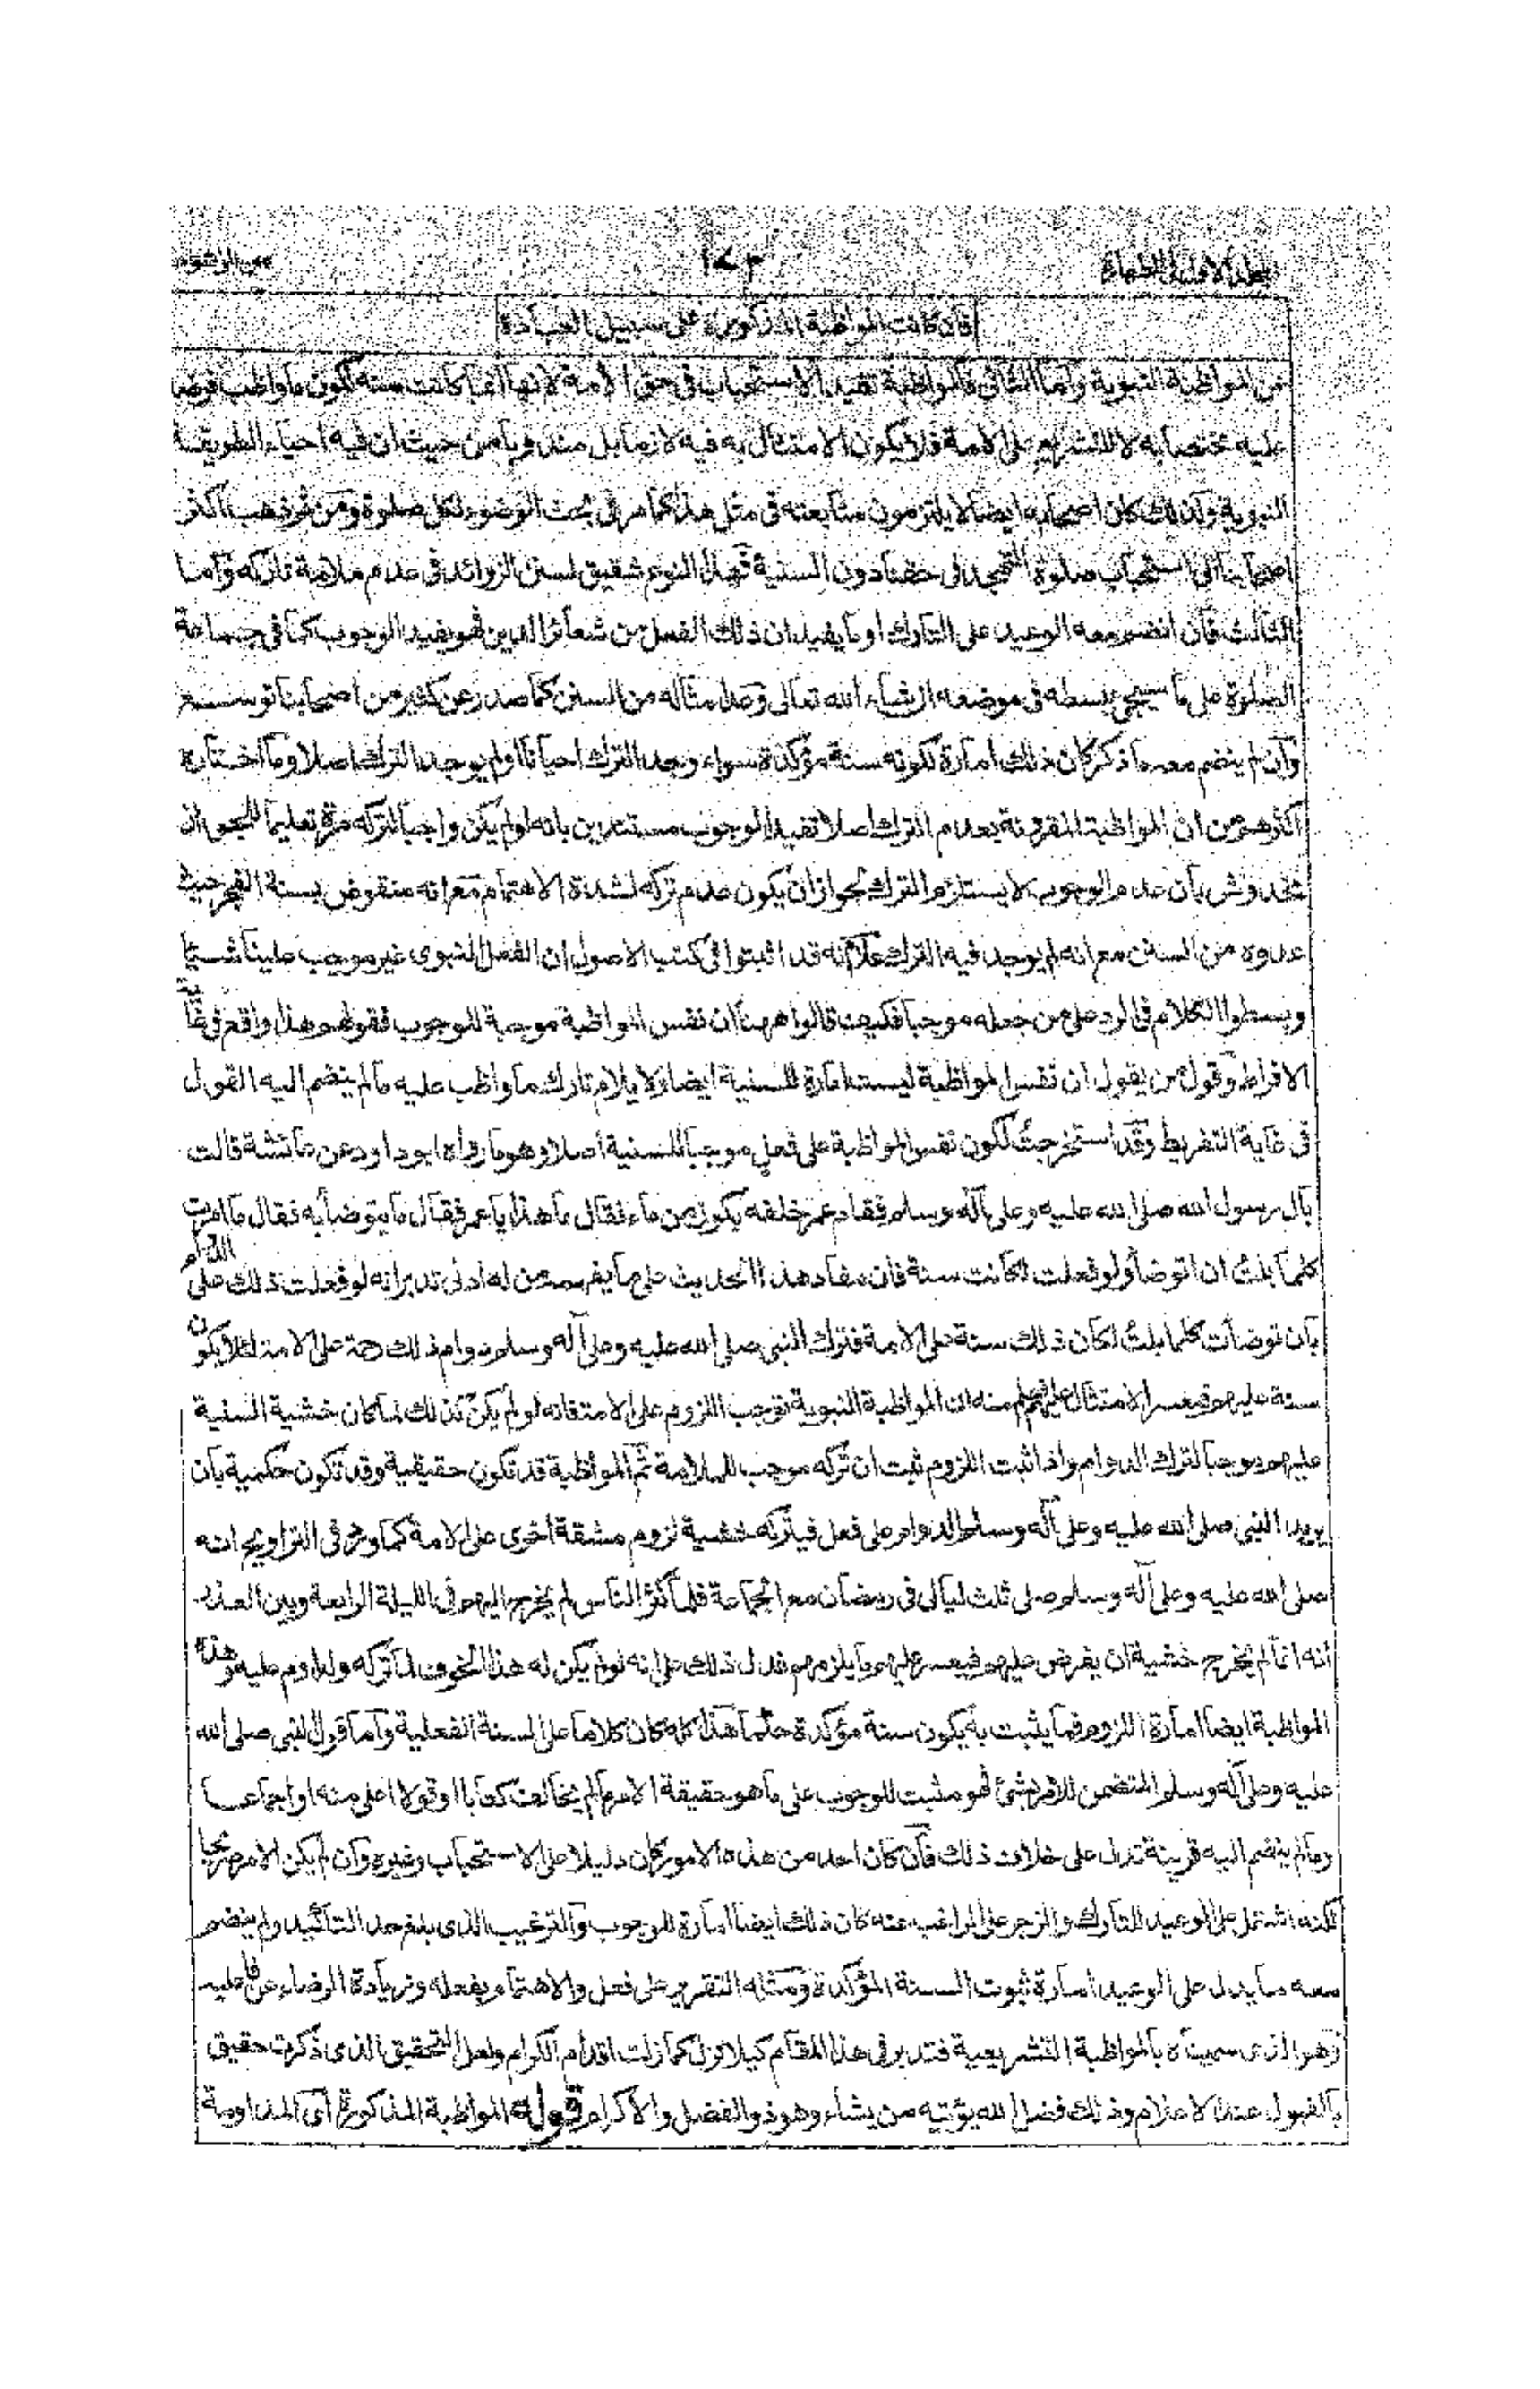 المجلد الاول في الطهارة ١٧٢ سنن الوضوء
فان كانت المواظبة المذكورة على سبيل العبادة
من المواظبة النبوية وآما الثانى فالمواظبة تفيد الاستحباب فى حق الامة لانها انما كانت منه لكون ما واظب فرضا
عليه مختصا به لا للتشريع على الامة فلا يكون الامتثال به فيه لازما بل مندوبا من حيث ان فيه احياء الطريقة
النبوية وكذلك كان اصحابه ايضا لا يلتزمون متابعته فى مثل هذا كما مر فى بحث الوضوء لكل صلوة ومن ثم ذهب اكثر
اصحابنا الى استحباب صلوة التهجد فى حقنا دون السنية فهذا النوع شقيق لسنن الزوائد فى عدم ملامة تاركه وآما
الثالث فان انضم معه الوعيد على التارك او ما يفيد ان ذلك الفعل من شعائر الدين فهو يفيد الوجوب كما فى جماعة
الصلوة على ما سيجئ بسطه فى موضعه ان شاء الله تعالى وعد امثاله من السنن كما صدر عن كثير من اصحابنا توسع
وان لم ينضم معه ما ذكر كان ذلك امارة لكونه سنة مؤكدة سواء وجد الترك احيانا اولم يوجد الترك اصلا وما اختاره
اكثرهم من ان المواظبة المقرونة بعدم الترك اصلا تفيد الوجوب مستندين بانه لولم يكن واجبا لتركه مرة تعليما للجواز
مخدوش بان عدم الوجوب لا يستلزم الترك لجواز ان يكون عدم تركه لشدة الاهتمام مع انه منقوض بسنة الفجر حيث
عدوه من السنن مع انه لم يوجد فيه الترك علا انه قد اثبتوا فى كتب الاصول ان الفعل النبوى غير موجب علينا شيئا
وبسطوا الكلام فى الرد على من جعله موجبا فكيف قالوا ههنا ان نفس المواظبة موجبة للوجوب فقولهم هذا واقع فى غاية
الافراط وقول من يقول ان نفس المواظبة ليست امارة للسنية ايضا ولا يلام تارك ما واظب عليه ما لم ينضم اليه القول
فى غاية التفريط وقد استخرجت لكون نفس المواظبة على فعل موجبا للسنية اصلا وهو ما رواه ابو داود عن عائشة قالت
بال رسول الله صلى الله عليه وعلى آله وسلم فقام عمر خلفه بكوز من ماء فقال ما هذا يا عمر فقال ما يتوضأ به فقال ما امرت
كلما بلت ان اتوضأ ولو فعلت لكانت سنة فان مفاد هذا الحديث على ما يفهمه من له ادنى تدبر انه لو فعلت ذلك على الدوام
بان توضأت كلما بلت لكان ذلك سنة على الامة فترك النبى صلى الله عليه وعلى آله وسلم دوام ذلك رحمة على الامة لئلا يكون
سنة عليهم فيعسر الامتثال عليهم فعلم منه ان المواظبة النبوية توجب اللزوم على الامة فانه لو لم يكن كذلك لما كان خشية السنية
عليهم موجبا لترك الدوام واذا ثبت اللزوم ثبت ان تركه موجب للملامة ثم المواظبة قد تكون حقيقية وقد تكون حكمية بان
يريد النبى صلى الله عليه وعلى آله وسلم الدوام على فعل فيتركه خشية لزوم مشقة اخرى على الامة كما ورد فى التراويح انه
صلى الله عليه وعلى آله وسلم صلى ثلث ليالى فى رمضان مع الجماعة فلما كثر الناس لم يخرج اليهم فى الليلة الرابعة وبين العذر
انه انما لم يخرج خشية ان يفرض عليهم فيعسر عليهم ما يلزمهم فدل ذلك على انه لو لم يكن له هذا الخوف لما تركه ولداوم عليه وهذه
المواظبة ايضا امارة اللزوم فما يثبت به يكون سنة مؤكدة حتما هذا كله كان كلاما على السنة الفعلية وآما قول النبى صلى الله
عليه وعلى آله وسلم المتضمن للامر بشئ فهو مثبت للوجوب على ما هو حقيقة الامر ما لم يخالف كتابا او قولا اعلى منه او اجماعا
وما لم ينضم اليه قرينة تدل على خلاف ذلك فان كان احد من هذه الامور كان دليلا على الاستحباب وغيره وآن لم يكن الامر صريحا
لكنه اشتمل على الوعيد للتارك والزجر على الراغب عنه كان ذلك ايضا امارة للوجوب والترغيب الذى بلغ حد التأكيد ولم ينضم
معه ما يدل على الوعيد امارة ثبوت السنة المؤكدة ومثله التقرير على فعل والاهتمام بفعله وزيادة الرضاء عن فاعليه
وهو الذى سميناه بالمواظبة التشريعية فتدبر فى هذا المقام كيلا تزل كما زلت اقدام الكرام ولعل التحقيق الذى ذكرت حقيق
بالقبول عند الاعلام وذلك فضل الله يؤتيه من يشاء وهو ذو الفضل والاكرام قوله المواظبة المذكورة آى المداومة